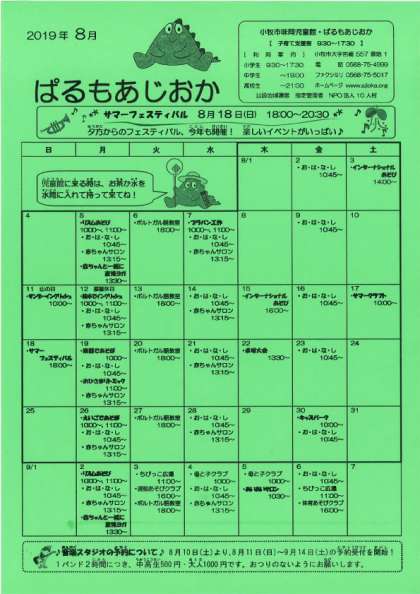 2019年 8月
小牧市味岡児童館・ぱるもあじおか
[ 子育て支援室 9:30～17:30 ]
[ 利 用 案 内 ]
小学生 9:30～17:30
中学生 ～19:00
高校生 ～21:00
電 話 0568-75-4999
ファクシミリ 0568-75-5017
ホームページ www.ajioka.org
指定管理者 NPO法人
ぱるもあじおか
サマーフェスティバル 8月18日(日) 18:00～20:30
夕方からのフェスティバル、今年も開催! 楽しいイベントがいっぱい♪
日 月 火 水 木 金 土
児童館に来る時は、お茶か水を
水筒に入れて持って来てね!
8/1
2
・お・は・な・し
10:45～
3
・インターナショナル
あそび
14:00～
4
5
・リズムあそび
10:00～、11:00～
・お・は・な・し
10:45～
・赤ちゃんサロン
13:15～
・赤ちゃんと一緒に
13:30～
6
・ポルトガル語教室
18:00～
7
・プラバン工作
10:00～、11:00～
・お・は・な・し
10:45～
・赤ちゃんサロン
13:15～
8
9
・お・は・な・し
10:45～
10
11 山の日
・サンデーイングリッシュ
10:00～
12 振替休日
・絵本でイングリッシュ
10:00～、11:00～
・お・は・な・し
10:45～
・赤ちゃんサロン
13:15～
13
・ポルトガル語教室
18:00～
14
・お・は・な・し
10:45～
・赤ちゃんサロン
13:15～
15
・インターナショナル
あそび
16:00～
16
・お・は・な・し
10:45～
17
・サマークラフト
10:00～
18
・サマー
フェスティバル
18:00～
19
・楽器であそぼ
10:00～
・お・は・な・し
10:45～
11:00～
・赤ちゃんサロン
13:15～
20
・ポルトガル語教室
18:00～
21
・お・は・な・し
10:45～
・赤ちゃんサロン
13:15～
22
・卓球大会
13:30～
23
・お・は・な・し
10:45～
24
25
26
・えいごであそぼ
10:00～
・お・は・な・し
10:45～
・赤ちゃんサロン
13:15～
27
・ポルトガル語教室
18:00～
28
・お・は・な・し
10:45～
・赤ちゃんサロン
13:15～
29
30
・キッズパーク
10:00～
・お・は・な・し
10:45～
31
9/1
2
・リズムあそび
10:00～、11:00～
・お・は・な・し
10:45～
・赤ちゃんサロン
13:15～
・赤ちゃんと一緒に
13:30～
3
・ちびっこ広場
11:00～
・運動あそびクラブ
16:00～
・ポルトガル語教室
18:00～
4
・母と子クラブ
10:00～
・お・は・な・し
10:45～
・赤ちゃんサロン
13:15～
5
・母と子クラブ
10:00～
10:30～
6
・お・は・な・し
10:45～
・ちびっこ広場
11:00～
・体育あそびクラブ
16:00～
7
♪音楽スタジオの予約について♪ 8月10日(土)より、8月11日(日)～9月14日(土)の予約受付を開始!
1バンド2時間につき、中高生500円・大人1000円です。おつりのないようにお願いします。